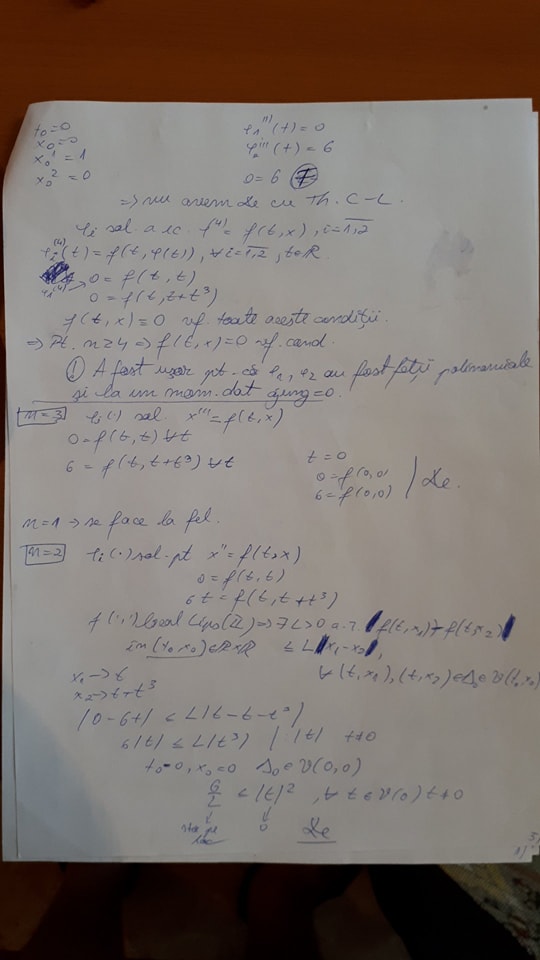 t₀=0
x₀=0
x₀¹=1
x₀²=0
φ₁'''(t)=0
φ₂'''(t)=6
0=6 F
⇒ nu avem Xe cu Th. C-L.
φi sol. a ec. f⁽⁴⁾ = f(t,x), i=1,2
φi⁽⁴⁾(t)=f(t,φ(t)), ∀i=1,2, t∈R.
φ₁⁽⁴⁾ → 0=f(t,t)
0=f(t,t+t³)
f(t,x)=0 vf. toate aceste condiții.
⇒ Pt. n≥4 ⇒ f(t,x)=0 vf. cond.
① A fost ușor pt. că φ₁, φ₂ au fost fcții polinomiale
și la un mom. dat ajung=0.
n=3 φi(·) sol. x'''=f(t,x)
0=f(t,t) ∀t
6=f(t,t+t³) ∀t
t=0
0=f(0,0)
6=f(0,0) | Xe.
n=1 → se face la fel.
n=2 φi(·) sol. pt x''=f(t,x)
0=f(t,t)
6t=f(t,t+t³)
f(·,·) local Lips(II) ⇒ ∃L>0 a.î. |f(t,x₁)-f(t,x₂)|
în (t₀,x₀)∈R×R ≤ L|x₁-x₂|,
∀(t,x₁),(t,x₂)∈Δ₀∈V(t₀,x₀)
x₁→t
x₂→t+t³
|0-6t| ≤ L|t-t-t³|
6|t| ≤ L|t³| |:|t| t≠0
t₀=0, x₀=0 Δ₀∈V(0,0)
6/L ≤ |t|², ∀t∈V(0) t≠0
↓ ↓
stă pe 0 Xe
loc